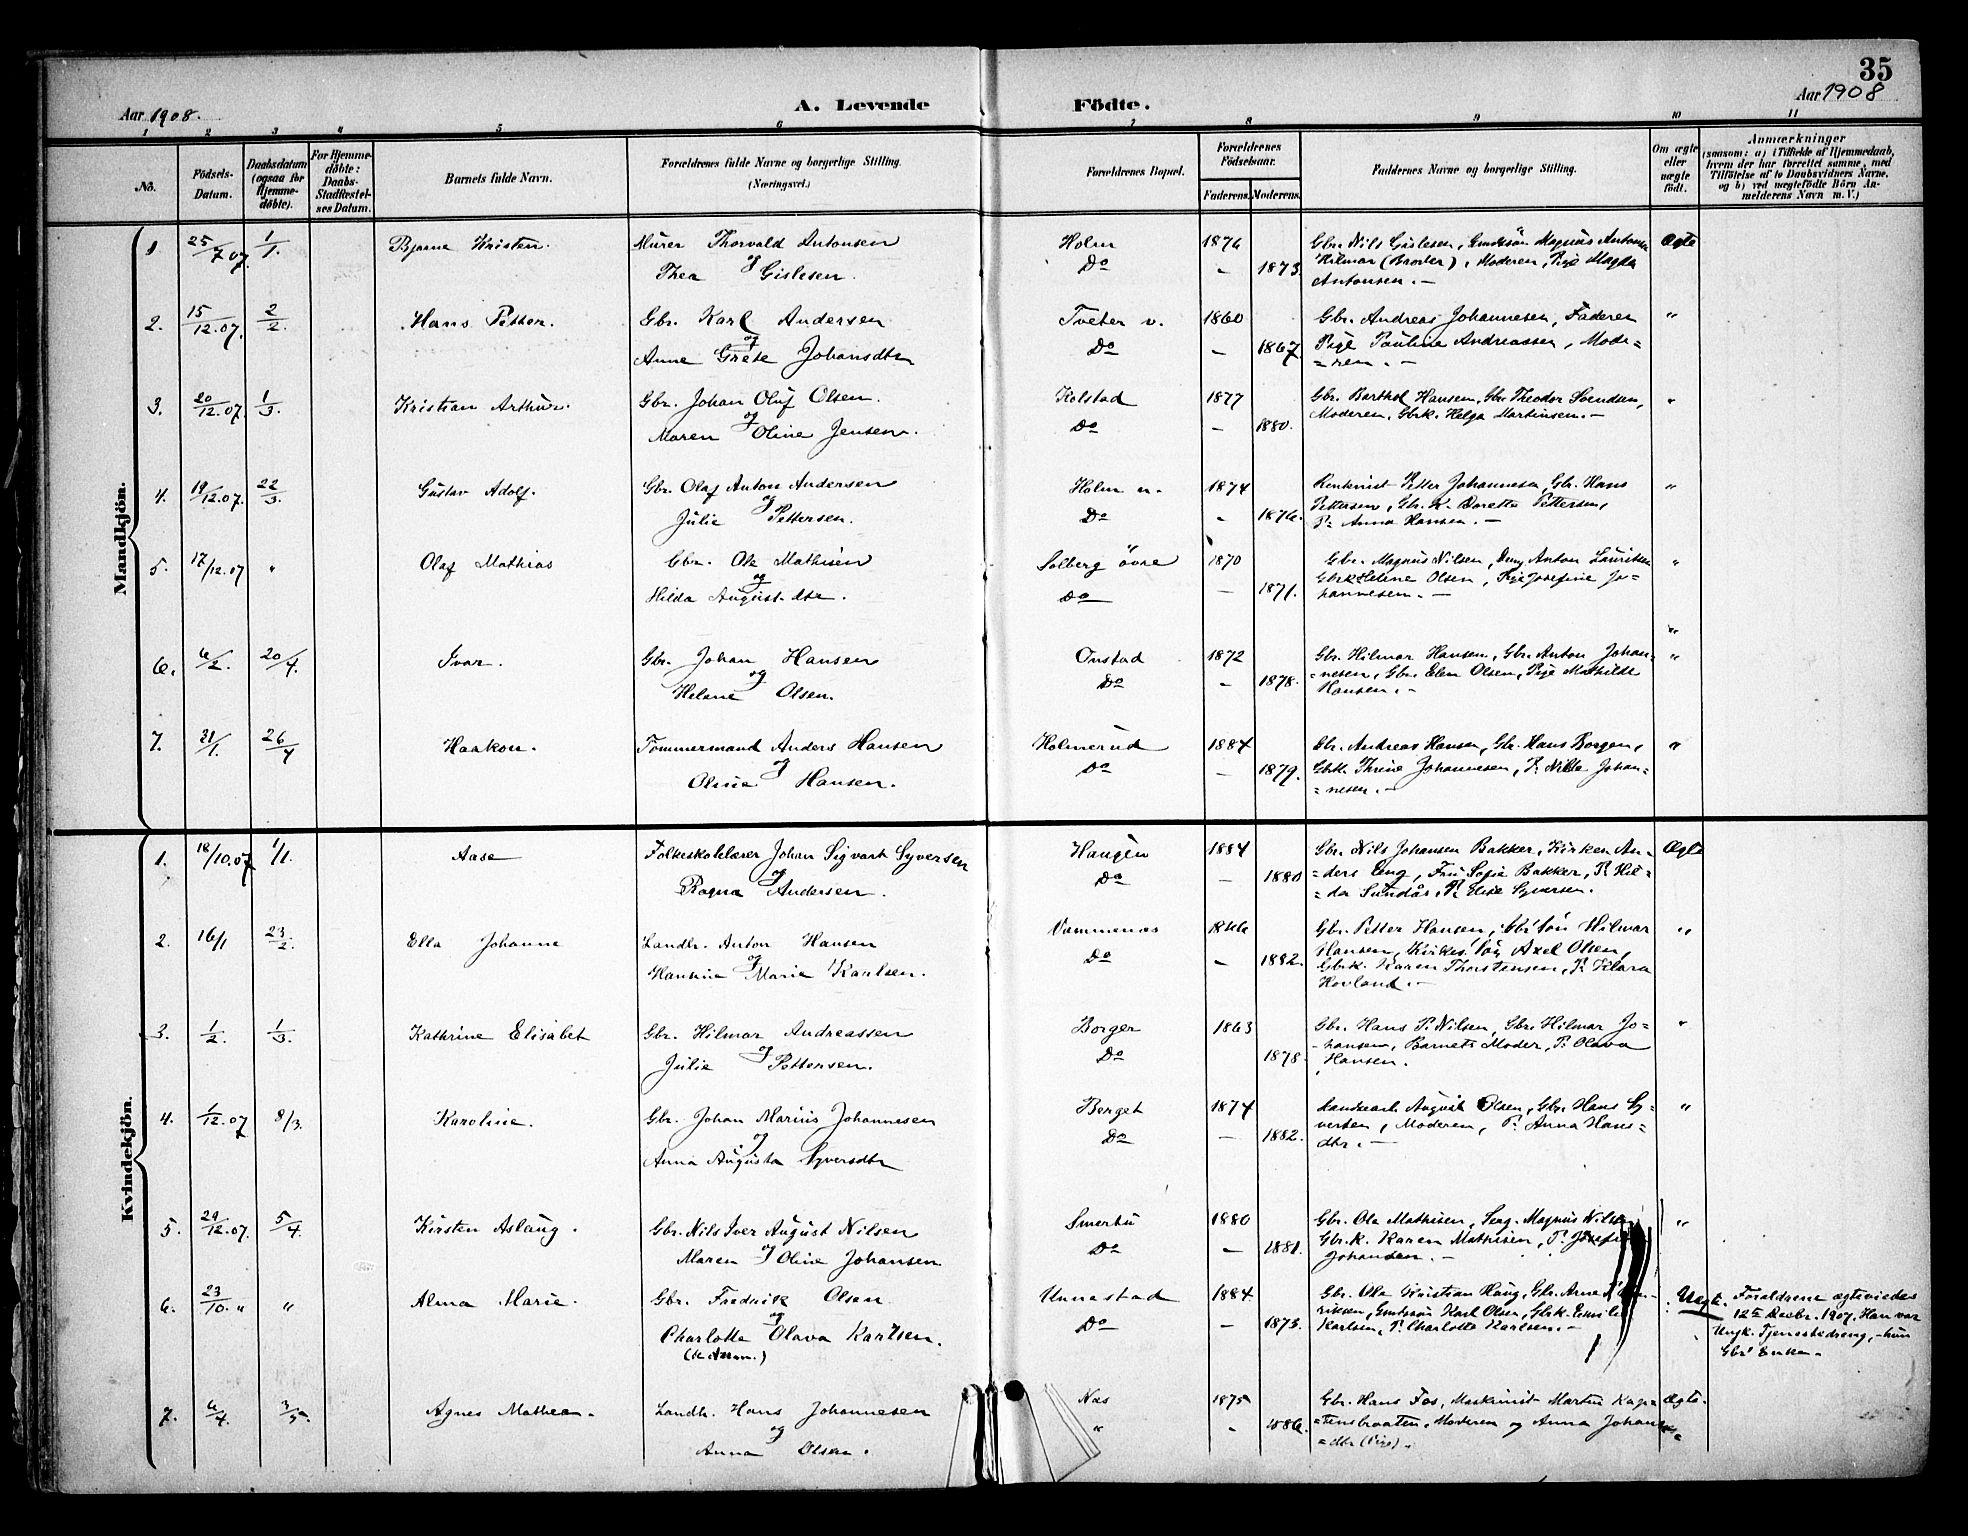 35
Aar 1908. A. Levende Födte. Aar 1908
1 2 3 4 5 6 7 8 9 10 11
No. Födsels-Datum. Daabsdatum (ogsaa for Hjemme-döbte). For Hjemme-döbte: Daabs-Stadfæstel-ses Datum. Barnets fulde Navn. Forældrenes fulde Navne og borgerlige Stilling. (Næringsvei.) Forældrenes Bopæl. Forældrenes Födselsaar. Faderens. Moderens. Faddernes Navne og borgerlige Stilling. Om ægte eller uægte födt. Anmærkninger (saasom: a) i Tilfælde af Hjemmedaab, hvem der har forrettet samme, med Tilföielse af to Daabsvidners Navne, og b) ved uægtefödte Börn An-melderens Navn m. V.)
Mandkjön.
1. 25/7 07. 1/1. Bjarne Kristen. Murer Thorvald Antonsen Holm 1876 Gbr. Nils Gislesen, Magnus Antonsen Ægte
og Thea Gislesen. Do – 1873. Hilmar (Broder), Moderen, Pige Magda
Antonsen. –
2. 15/12.07. 2/2. Hans Petter. Gbr. Karl Andersen Tveter v. 1860 Gbr. Andreas Johannesen, Faderen "
og Anne Grete Johansdtr Do – 1867. Pige Pauline Andreassen, Mode=
=ren. –
3. 20/12.07. 1/3. Kristian Arthur. Gbr. Johan Oluf Olsen. Kolstad 1877 Gbr. Barthol Hansen, Gbr. Theodor Svendsen, "
og Maren Oline Jensen. Do – 1880. Moderen, Gbrk. Helga Martinsen. –
4. 19/12.07. 22/3. Gustav Adolf. Gbr. Olaf Anton Andersen Holm n. 1874 Petter Johannesen, Gbr. Hans "
og Julie Pettersen. Do – 1876. Pettersen, Gbr. K. Dorette Pettersen,
P. Anna Hansen. –
5. 17/12.07 " Olaf Mathias Gbr. Ole Mathisen Solberg övre 1870 Gbr. Magnus Nilsen, Anton Lauritsen "
og Hilda August.dtr. Do – 1871. Gbrk Helene Olsen, Pige Josefine Jo-
hannesen. –
"
6. 6/2. 20/4. Ivar. Gbr. Johan Hansen Onstad 1872 Gbr. Hilmar Hansen, Gbr. Anton Johan= "
og Helene Olsen. Do – 1878. =nesen, Gbr. Elen Olsen, Pige Mathilde
Hansen. –
7. 31/1. 26/4 Haakon. Tømmermand Anders Hansen Holmerud 1884 Gbr. Andreas Hansen, Gbr. Hans Borgen, "
og Oline Hansen. Do – 1879. Gbrk. Thrine Johannesen, P. Johan=
=nesen. –
Kvindekjön.
1. 18/10.07 1/1. Aase Folkeskolelærer Johan Sigvart Syversen Haugen 1884 Gbr. Nils Johansen Bakker, An= Ægte
og Ragna Andersen. Do – 1880 =ders Eng, Fru Sofie Bakker, P. Hil=
=da Sundår, P. Elise Syversen.
2. 16/1 23/2. Ella Johanne Landh. Anton Hansen Vammenæs Gbr. Petter Hansen, Gbr. sön Hilmar "
og Hansine Marie Karlsen. Do – 1882. Hansen, Axel Olsen,
Gbrk. Karen Thorstensen, P. Klara
Hovland. –
3. 1/2. 1/3. Kathrine Elisabet Gbr. Hilmar Andreassen Borger 1863 Gbr. Hans P. Nilsen, Gbr. Hilmar Jo= "
og Julie Pettersen. Do 1878. -hansen, Barnets Moder, P. Olava
Hansen.
4. 1/12.07 8/3. Karoline. Gbr. Johan Marius Johannesen Berget 1874 August Olsen, Gbr. Hans Sy= "
og Anna Augusta Syversdtr Do – 1882. versen, Moderen, P. Anna Hans=
dtr. –
5. 29/12.07. 5/4. Kirsten Aslaug. Gbr. Nils Iver August Nilsen Smerbu 1880 Gbr. Ole Mathisen, Serg. Magnus Nilsen "
og Maren Oline Johansen Do – 1881. Gbr. K. Karen Mathisen, P.
Johansen. –
6. 23/10. " " Alma Marie. Gbr. Fredrik Olsen Unnestad 1884. Gbr. Ole Kristian Haug, Gbr. Arne Uægt. Forældrene ægteviedes
og Charlotte Olava Karlsen. Do – 1873. Karl Olsen, Gbrk. 12te Decbr. 1907. Han var
Karlsen, P. Charlotte Karlsen. – Ungk. Tjenestedreng, – hun
Gbr. Enke. –
7. 6/4. 3/5. Agnes Mathea. Landh. Hans Johannesen Næs 1875 Gbr. Hans Fos, Maskinist Martin Ægte.
og Anna Olsen. " – 1886. Moderen og Anna Johannes=
=dtr (Pige).